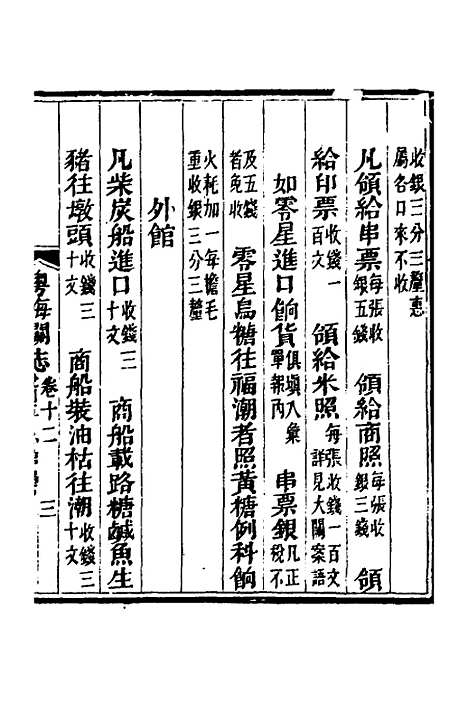 收銀三分三釐惠
屬各口來不收
凡領給串票每張收銀五錢 領給商照每張收銀三錢 領
給印票收錢一百文 領給米照每張收錢一百文詳見大關案語
如零星進口餉貨俱填入彙單報丙 串票銀凡正稅不
及五錢者免收 零星烏糖往福潮者照黃糖例科餉
火耗加一每擔毛
重收銀三分三釐
外館
凡柴炭船進口收錢二十文 商船載路糖鹹魚生
豬往墩頭收錢三十文 商船裝油枯往潮收錢三十文
粵海關志 卷十二 三